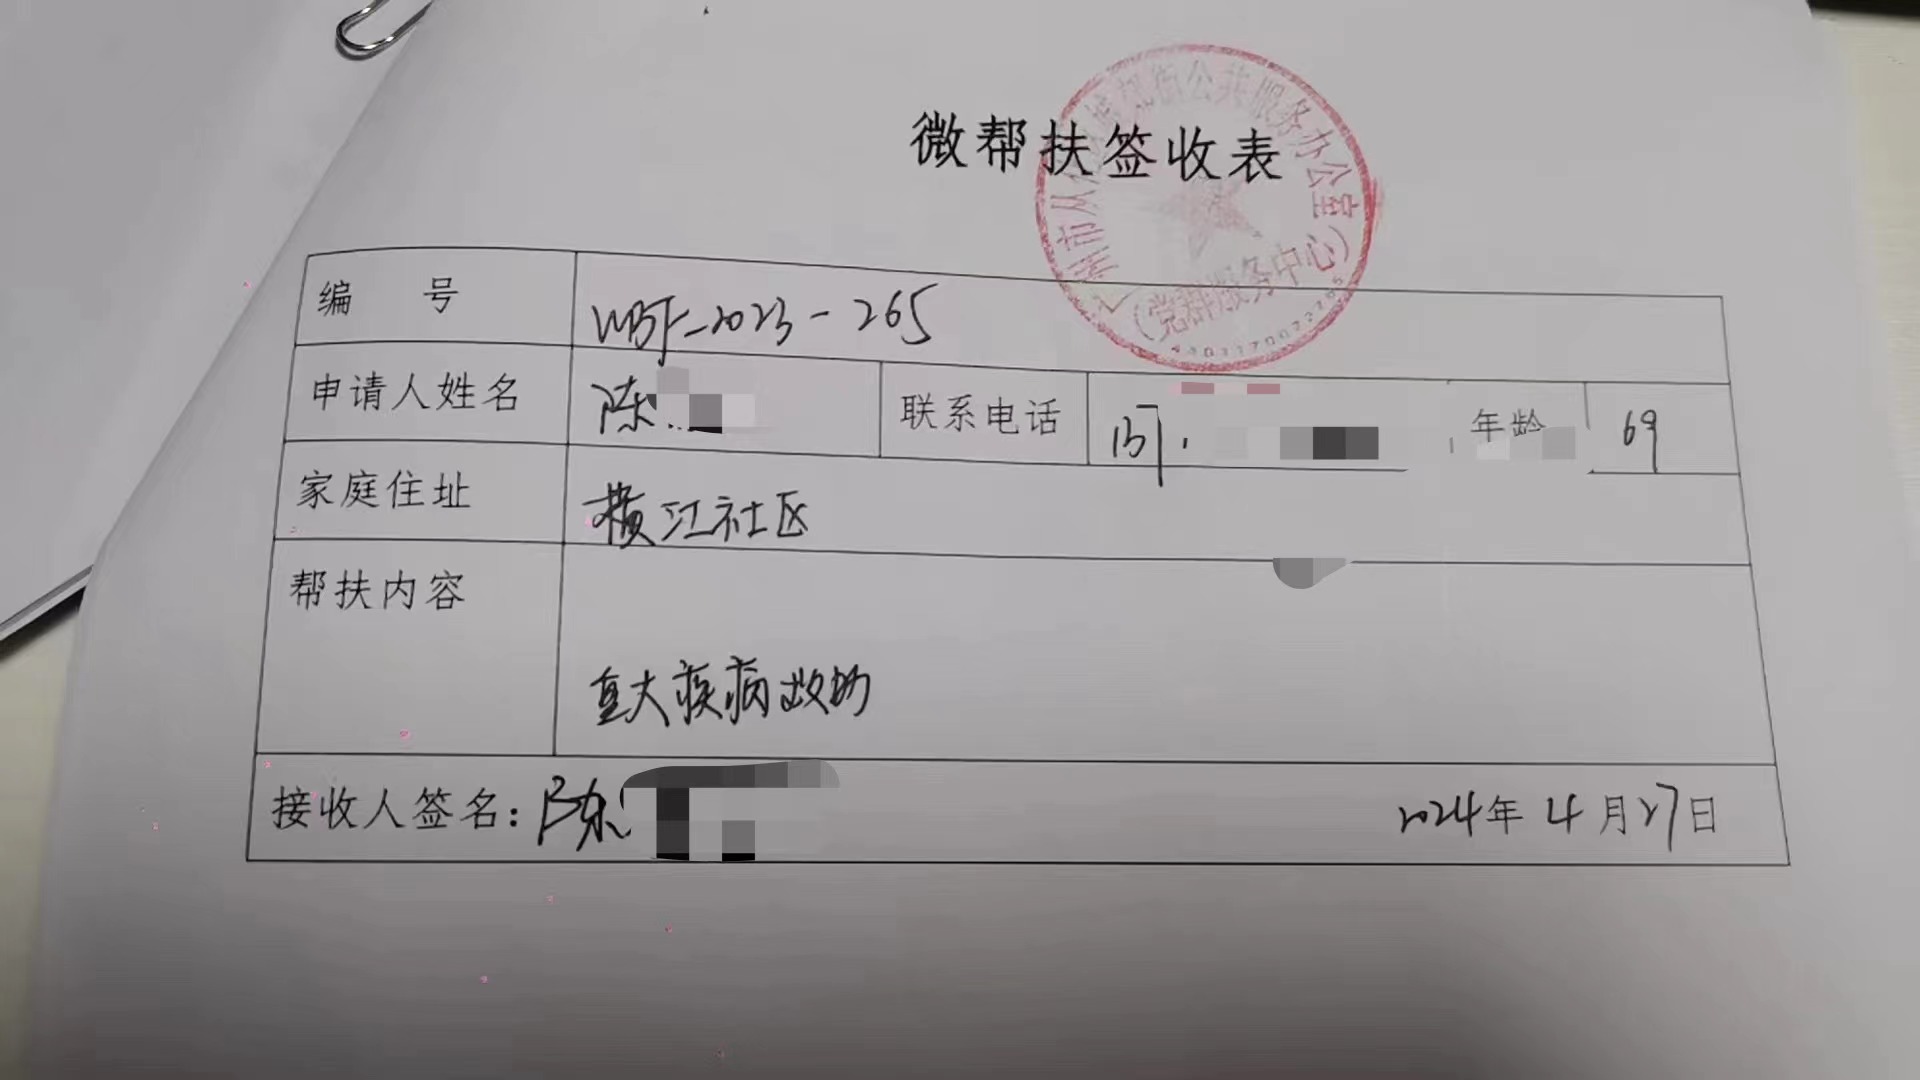 微帮扶签收表
州市从 城郊街公共服务办公室
(党群服务中心)
编 号 WBF-2023-265
申请人姓名 陈 联系电话 137 年龄 69
家庭住址 横江社区
帮扶内容
重大疾病救助
接收人签名：陈 2024年4月27日